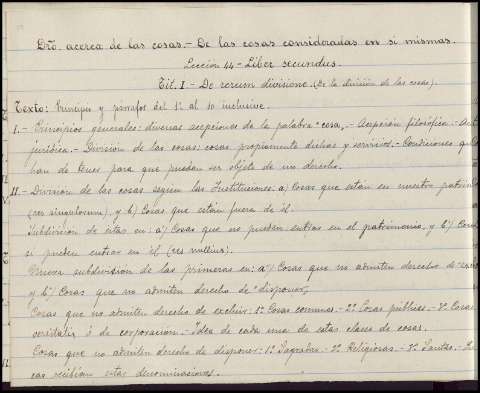 Dro. acerca de las cosas.- De las cosas consideradas en si mismas.
Lección 44 - Liber secundus.
Tit. I - De rerum divisione. (De la división de las cosas).
Texto: Principio y párrafos del 1º al 10 inclusive.
I.- Principios generales: diversas acepciones de la palabra "cosa".- Acepción filosófica.-
jurídica.- División de las cosas: cosas propiamente dichas y servicios.- Condiciones que
han de tener para que puedan ser objeto de un derecho.
II.- División de las cosas según las Instituciones: a) Cosas que están en nuestro
(res singulorum), y b) Cosas que están fuera de él.
Subdivisión de estas en: a') Cosas que no pueden entrar en el patrimonio, y b')
si pueden entrar en él (res nullius).
Nueva subdivisión de las primeras en: a") Cosas que no admiten derecho de
y b") Cosas que no admiten derecho de "disponer".
Cosas que no admiten derecho de excluir: 1º Cosas comunes.- 2º Cosas públicas.- 3º Cosas
ó de corporación.- Idea de cada una de estas clases de cosas.
Cosas que no admiten derecho de disponer: 1º Sagradas.- 2º Religiosas.- 3º Santas.-
cas recibían estas denominaciones.